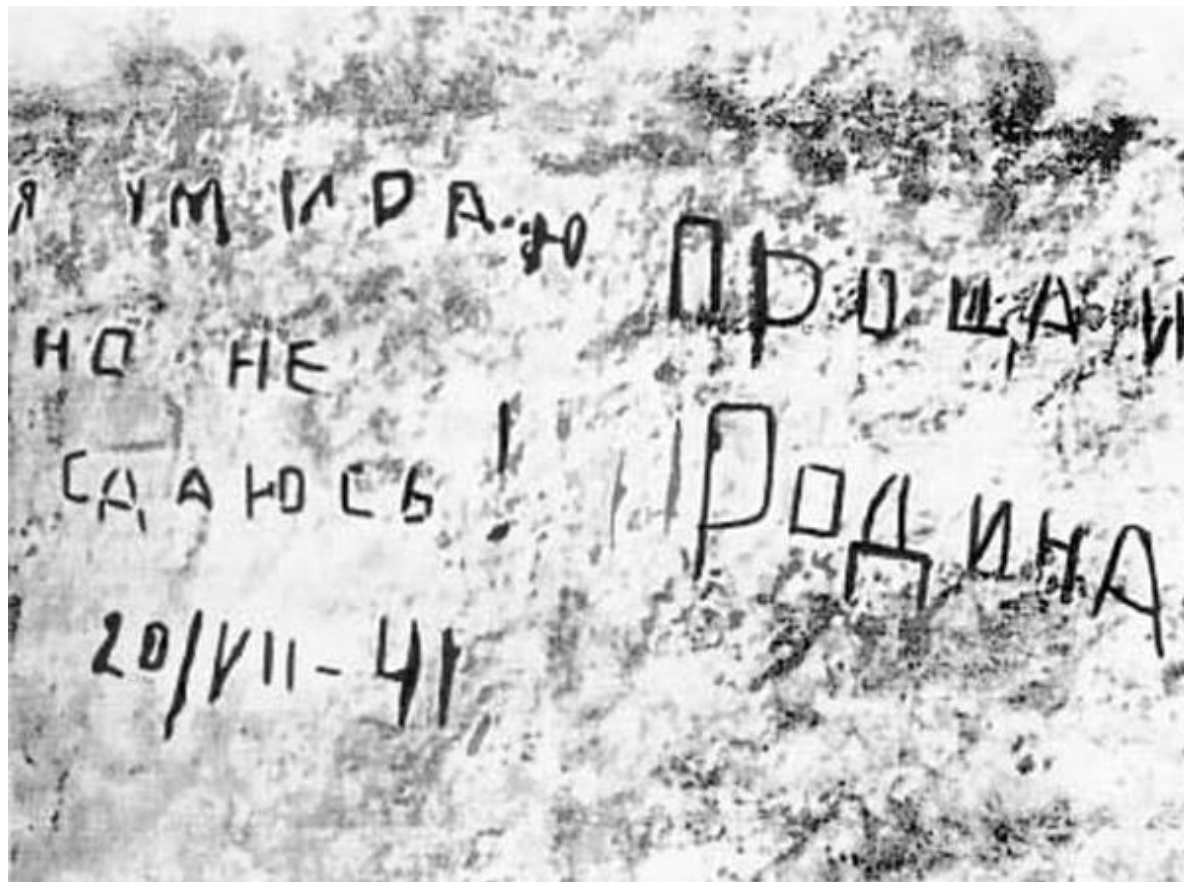 Я УМИРАЮ
НО НЕ
СДАЮСЬ!
20/VII-41
ПРОЩАЙ
РОДИНА.